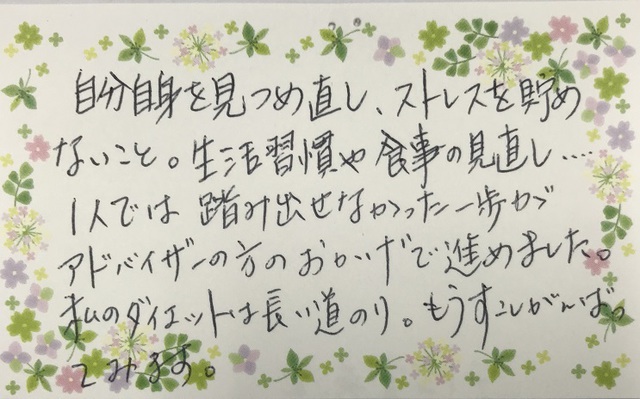 自分自身を見つめ直し、ストレスを貯め
ないこと。生活習慣や食事の見直し‥‥
1人では踏み出せなかった一歩が
アドバイザーの方のおかげで進めました。
私のダイエットは長い道のり。もうすこしがんばっ
てみます。